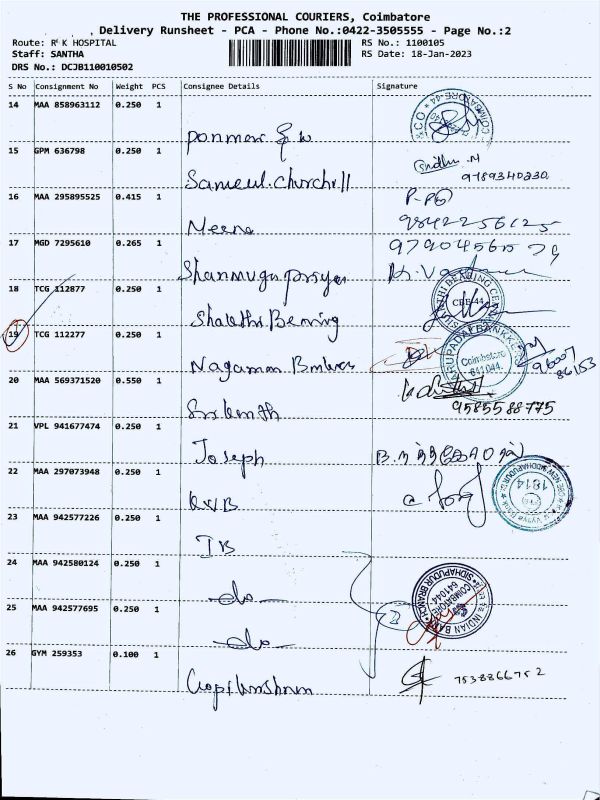 THE PROFESSIONAL COURIERS, Coimbatore
Delivery Runsheet - PCA - Phone No.:0422-3505555 - Page No.:2
Route: R K HOSPITAL RS No.: 1100105
Staff: SANTHA RS Date: 18-Jan-2023
DRS No.: DCJB110010502
S No Consignment No Weight PCS Consignee Details Signature
14 MAA 858963112 0.250 1
15 GPM 636798 0.250 1
Sindhu M
9789340230
Sameul.Churchill
16 MAA 295895525 0.415 1
9842256125
Meena
17 MGD 7295610 0.265 1
Shanmugapriya
18 TCG 112877 0.250 1
CBE-44
19 TCG 112277 0.250 1
Coimbatore
641044
96007
86153
20 MAA 569371520 0.550 1
9585588775
Srikanth
21 VPL 941677474 0.250 1
Joseph
22 MAA 297073948 0.250 1
1814
KVB
23 MAA 942577226 0.250 1
IB
24 MAA 942580124 0.250 1
-do-
INDIAN BANK
SIDHAPUDUR BRANCH
COIMBATORE
641044
25 MAA 942577695 0.250 1
-do-
26 GYM 259353 0.100 1
7538866752